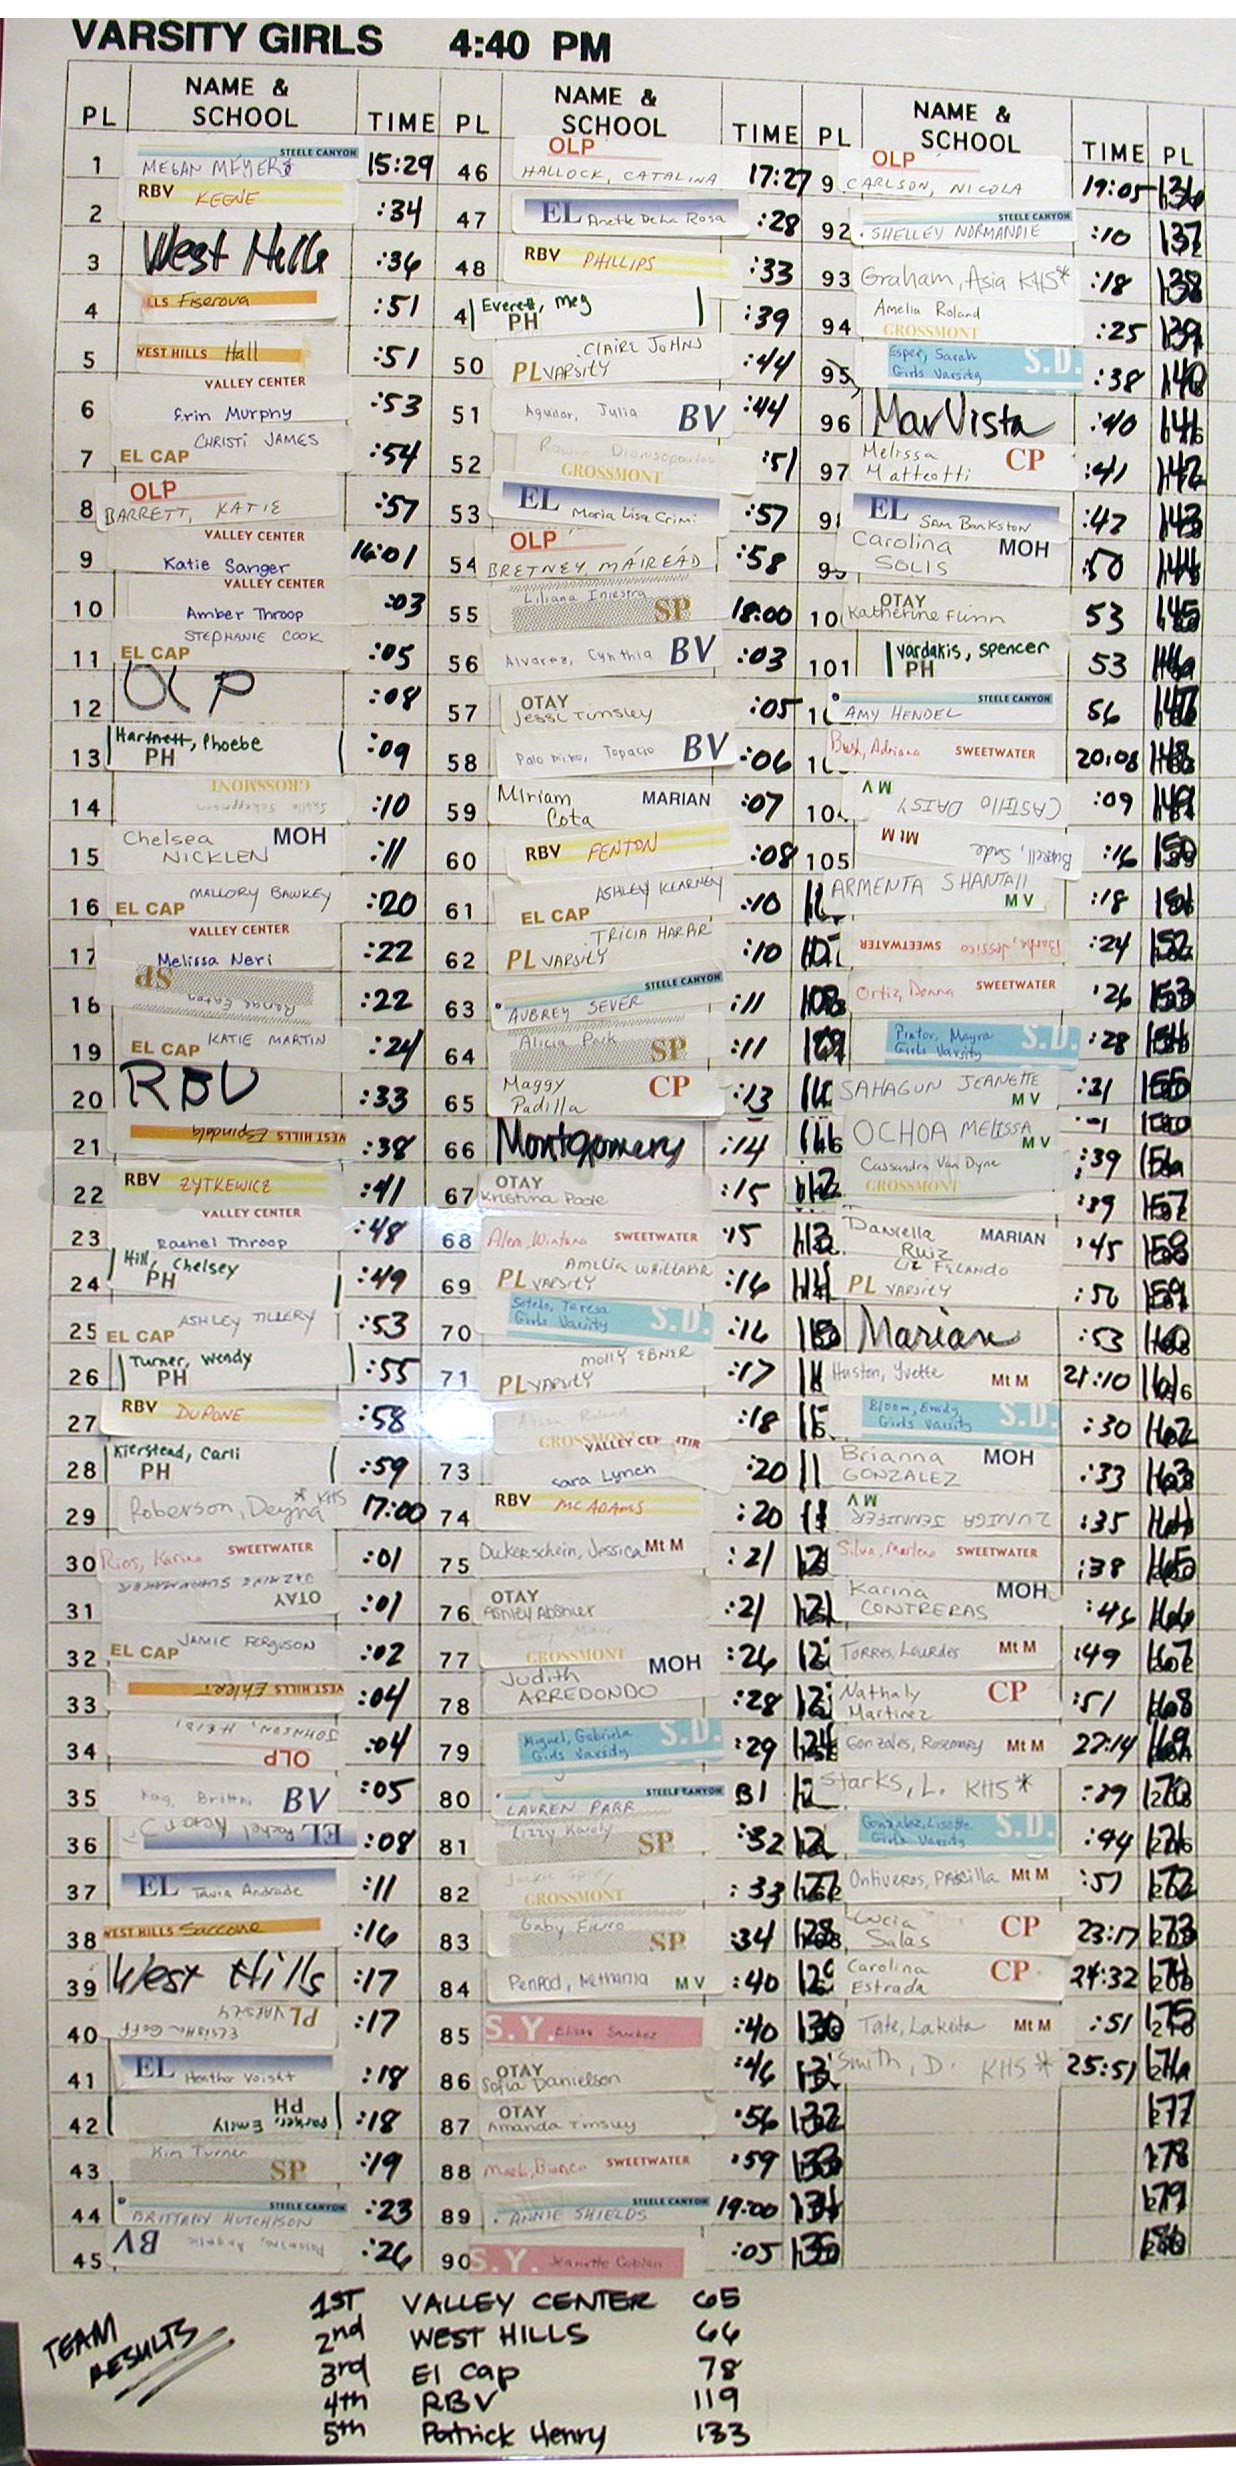 VARSITY GIRLS 4:40 PM
PL NAME & SCHOOL TIME PL NAME & SCHOOL TIME PL NAME & SCHOOL TIME PL
1 STEELE CANYON MEGAN MEYERS 15:29
2 RBV KEENE :34
3 West Hills :36
4 LLS Fiserova :51
5 WEST HILLS Hall :51
6 VALLEY CENTER Erin Murphy :53
7 EL CAP CHRISTI JAMES :54
8 OLP BARRETT, KATIE :57
9 VALLEY CENTER Katie Sanger 16:01
10 VALLEY CENTER Amber Throop :03
11 EL CAP STEPHANIE COOK :05
12 OLP :08
13 Hartnett, Phoebe PH :09
14 GROSSMONT :10
15 Chelsea NICKLEN MOH :11
16 EL CAP MALLORY BAWKEY :20
17 VALLEY CENTER Melissa Neri :22
18 SP Renae Eaton :22
19 EL CAP KATIE MARTIN :24
20 RBV :33
21 WEST HILLS Espindola :38
22 RBV ZYTKEWICZ :41
23 VALLEY CENTER Rachel Throop :48
24 Hill, Chelsey PH :49
25 EL CAP ASHLEY TILLERY :53
26 Turner, Wendy PH :55
27 RBV DUPONE :58
28 Kierstead, Carli PH :59
29 Roberson, Deyna * KHS 17:00
30 Rios, Karina SWEETWATER :01
31 OTAY :01
32 EL CAP JAMIE FERGUSON :02
33 WEST HILLS Ehlert :04
34 OLP JOHNSON, HEIDI :04
35 BV :05
36 EL Rachel :08
37 EL Tavia Andrade :11
38 WEST HILLS Saccone :16
39 West Hills :17
40 PL VARSITY :17
41 EL Heather Voight :18
42 Parker, Emily PH :18
43 Kim Turner SP :19
44 STEELE CANYON BRITTANY HUTCHISON :23
45 BV :26
46 OLP HALLOCK, CATALINA 17:27
47 EL Anette DeLa Rosa :28
48 RBV PHILLIPS :33
4 Everett, Meg PH :39
50 CLAIRE JOHNS PL VARSITY :44
51 Aguilar, Julia BV :44
52 GROSSMONT :51
53 EL Maria Lisa Crimi :57
54 OLP BRETNEY, MAIREAD :58
55 Liliana Iniestra SP 18:00
56 Alvarez, Cynthia BV :03
57 OTAY Jessi Timsley :05
58 Palomino, Topacio BV :06
59 Miriam Cota MARIAN :07
60 RBV FENTON :08
61 EL CAP ASHLEY KEARNEY :10
62 PL VARSITY TRICIA HARPAR :10
63 STEELE CANYON AUBREY SEVER :11
64 Alicia Park SP :11
65 Maggy Padilla CP :13
66 Montgomery :14
67 OTAY Kristina Poole :15
68 Alem, Wintana SWEETWATER :15
69 PL VARSITY AMELIA WHITTAKER :16
70 Sotelo, Teresa Girls Varsity S.D. :16
71 PL VARSITY MOLLY EBNER :17
GROSSMONT :18
73 VALLEY CENTER Sara Lynch :20
74 RBV MCADAMS :20
75 Dukerschein, Jessica Mt M :21
76 OTAY Ashley Abshier :21
77 GROSSMONT :26
78 Judith ARREDONDO MOH :28
79 Miguel, Gabriela Girls Varsity S.D. :29
80 STEELE CANYON LAUREN PARR 31
81 Lizzy Karoly SP :32
82 GROSSMONT :33
83 Gaby Fierro SP :34
84 MV :40
85 S.Y. Elissa Sanchez :40
86 OTAY Sofia Danielson :46
87 OTAY Amanda Timsley :56
88 Bianca SWEETWATER :59
89 STEELE CANYON ANNIE SHIELDS 19:00
90 S.Y. Jeanette :05
9 OLP CARLSON, NICOLA 19:05 136
92 STEELE CANYON SHELLEY NORMANDIE :10 137
93 Graham, Asia KHS* :18 138
94 Amelia Roland GROSSMONT :25 139
95 Esper, Sarah Girls Varsity S.D. :38 140
96 Mar Vista :40 141
97 Melissa Matteotti CP :41 142
9 EL Sam Bankston :42 143
99 Carolina SOLIS MOH :50 144
10 OTAY Katherine Flinn 53 145
101 Vardakis, Spencer PH 53 146
STEELE CANYON AMY HENDEL 56 147
Bush, Adriana SWEETWATER 20:08 148
104 MV CASTILLO DAISY :09 149
105 Mt M Burrell, Sade :16 150
ARMENTA SHANTAII MV :18 151
107 SWEETWATER :24 152
108 Ortiz, Donna SWEETWATER :26 153
109 Pintor, Mayra Girls Varsity S.D. :28 154
110 SAHAGUN JEANETTE MV :31 155
OCHOA MELISSA MV
Cassandra Van Dyne GROSSMONT :39 156
112 :39 157
113 Daniella Ruiz MARIAN :45 158
114 LIZ FELANDO PL VARSITY :50 159
Marian :53 160
Huston, Yvette Mt M 21:10 161
Bloom, Emily Girls Varsity S.D. :30 162
Brianna GONZALEZ MOH :33 163
MV ZUNIGA JENNIFER :35 164
Silva, Marlena SWEETWATER :38 165
121 Karina CONTRERAS MOH :46 166
Torres, Lourdes Mt M :49 167
Nathaly Martinez CP :51 168
124 Gonzales, Rosemary Mt M 22:14 169
Starks, L. KHS * :39 170
Gonzalez, Lisette Girls Varsity S.D. :44 171
127 Ontiveros, Priscilla Mt M :51 172
128 Lucia Salas CP 23:17 173
Carolina Estrada CP 24:32 174
130 Tate, Lakeita Mt M :51 175
Smith, D. KHS * 25:51 176
132 177
133 178
134 179
135 180
TEAM RESULTS
1ST VALLEY CENTER 65
2nd WEST HILLS 66
3rd El Cap 78
4th RBV 119
5th Patrick Henry 133